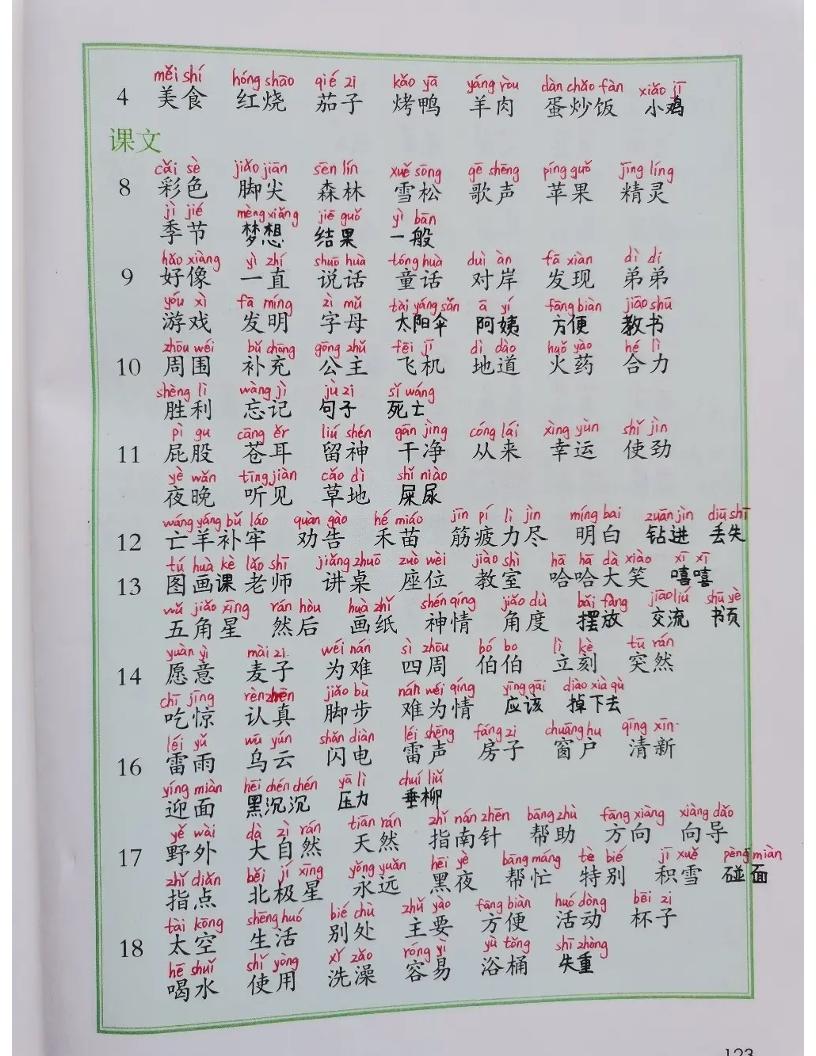 měi shí hóng shāo qié zi kǎo yā yáng ròu dàn chǎo fàn xiǎo jī
4 美食 红烧 茄子 烤鸭 羊肉 蛋炒饭 小鸡
课文
cǎi sè jiǎo jiān sēn lín xuě sōng gē shēng píng guǒ jīng líng
8 彩色 脚尖 森林 雪松 歌声 苹果 精灵
jì jié mèng xiǎng jié guǒ yì bān
季节 梦想 结果 一般
hǎo xiàng yì zhí shuō huà tóng huà duì àn fā xiàn dì di
9 好像 一直 说话 童话 对岸 发现 弟弟
yóu xì fā míng zì mǔ tài yáng sǎn ā yí fāng biàn jiāo shū
游戏 发明 字母 太阳伞 阿姨 方便 教书
zhōu wéi bǔ chōng gōng zhǔ fēi jī dì dào huǒ yào hé lì
10 周围 补充 公主 飞机 地道 火药 合力
shèng lì wàng jì jù zi sǐ wáng
胜利 忘记 句子 死亡
pì gu cāng ěr liú shén gān jìng cóng lái xìng yùn shǐ jìn
11 屁股 苍耳 留神 干净 从来 幸运 使劲
yè wǎn tīng jiàn cǎo dì shǐ niào
夜晚 听见 草地 屎尿
wáng yáng bǔ láo quàn gào hé miáo jīn pí lì jìn míng bai zuān jìn diū shī
12 亡羊补牢 劝告 禾苗 筋疲力尽 明白 钻进 丢失
tú huà kè lǎo shī jiǎng zhuō zuò wèi jiào shì hā hā dà xiào xī xī
13 图画课 老师 讲桌 座位 教室 哈哈大笑 嘻嘻
wǔ jiǎo xīng rán hòu huà zhǐ shén qíng jiǎo dù bǎi fàng jiāo liú shū yè
五角星 然后 画纸 神情 角度 摆放 交流 书页
yuàn yì mài zi wéi nán sì zhōu bó bo lì kè tū rán
14 愿意 麦子 为难 四周 伯伯 立刻 突然
chī jīng rèn zhēn jiǎo bù nán wéi qíng yīng gāi diào xià qù
吃惊 认真 脚步 难为情 应该 掉下去
léi yǔ wū yún shǎn diàn léi shēng fáng zi chuāng hu qīng xīn
16 雷雨 乌云 闪电 雷声 房子 窗户 清新
yíng miàn hēi chén chén yā lì chuí liǔ
迎面 黑沉沉 压力 垂柳
yě wài dà zì rán tiān rán zhǐ nán zhēn bāng zhù fāng xiàng xiàng dǎo
17 野外 大自然 天然 指南针 帮助 方向 向导
zhǐ diǎn běi jí xīng yǒng yuǎn hēi yè bāng máng tè bié jī xuě pèng miàn
指点 北极星 永远 黑夜 帮忙 特别 积雪 碰面
tài kōng shēng huó bié chù zhǔ yào fāng biàn huó dòng bēi zi
18 太空 生活 别处 主要 方便 活动 杯子
hē shuǐ shǐ yòng xǐ zǎo róng yì yù tǒng shī zhòng
喝水 使用 洗澡 容易 浴桶 失重
123